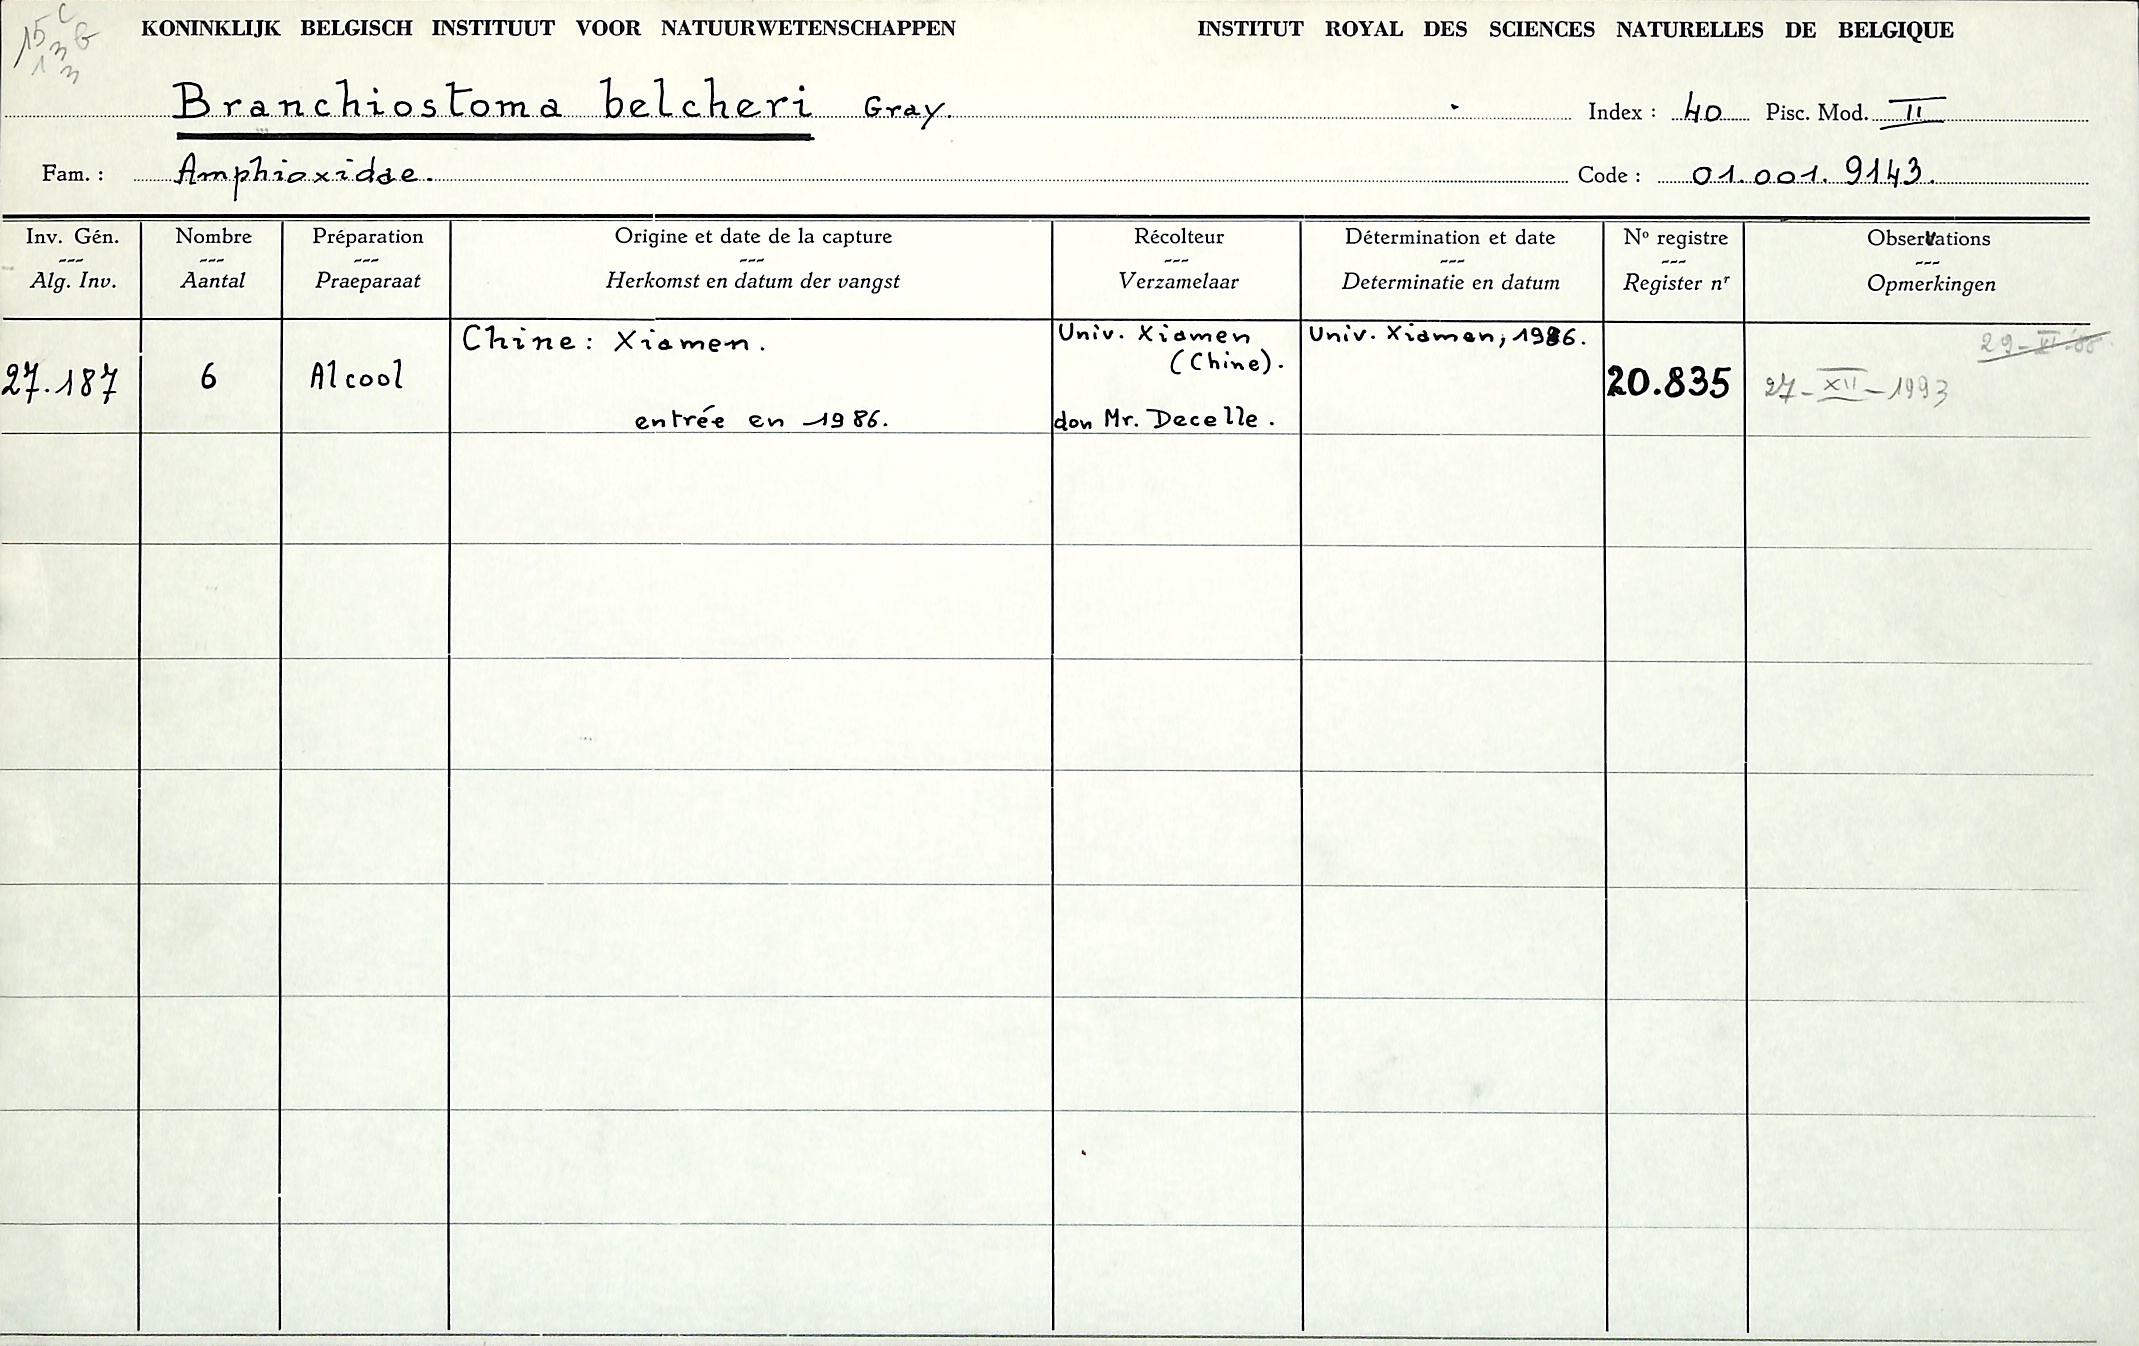 KONINKLIJK BELGISCH INSTITUUT VOOR NATUURWETENSCHAPPEN INSTITUT ROYAL DES SCIENCES NATURELLES DE BELGIQUE
Branchiostoma belcheri Gray. Index : 40 Pisc. Mod. II
Fam. : Amphioxidae. Code : 01.001.9143.
Inv. Gén. Nombre Préparation Origine et date de la capture Récolteur Détermination et date Nº registre Observations
--- --- --- --- --- --- --- ---
Alg. Inv. Aantal Praeparaat Herkomst en datum der vangst Verzamelaar Determinatie en datum Register nʳ Opmerkingen
Chine: Xiamen. Univ. Xiamen Univ. Xiamen, 1986.
(Chine).
27.187 6 Alcool 20.835 27-XII-1993
entrée en 1986. don Mr. Decelle.